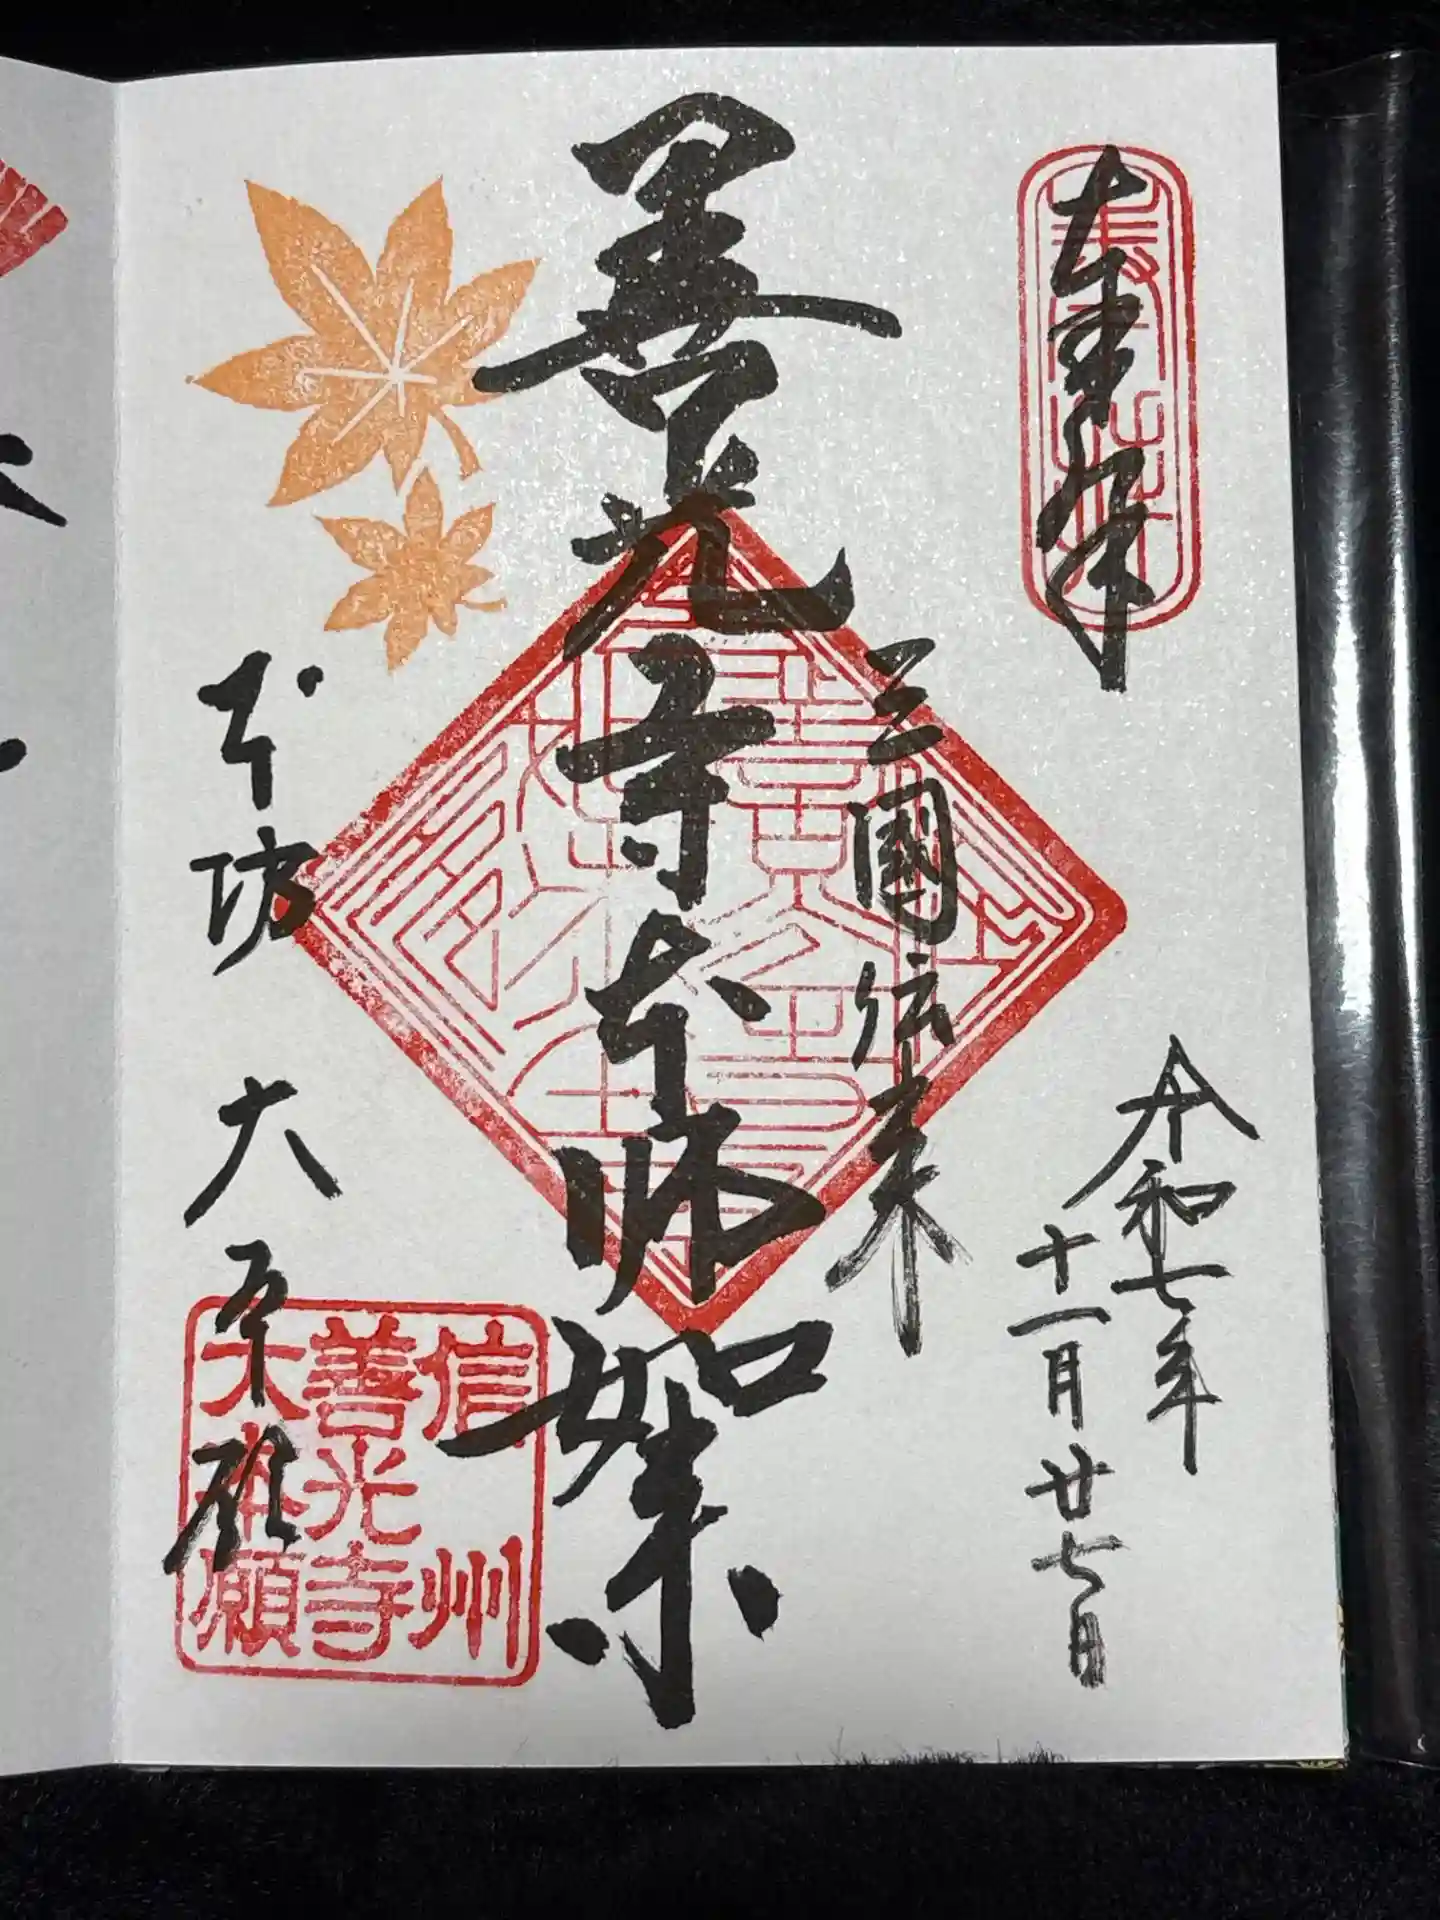 奉拝
令和七年
十一月廿七日
三國伝来
善光寺本师如来
本坊 大本願
信州
善光寺
大本願